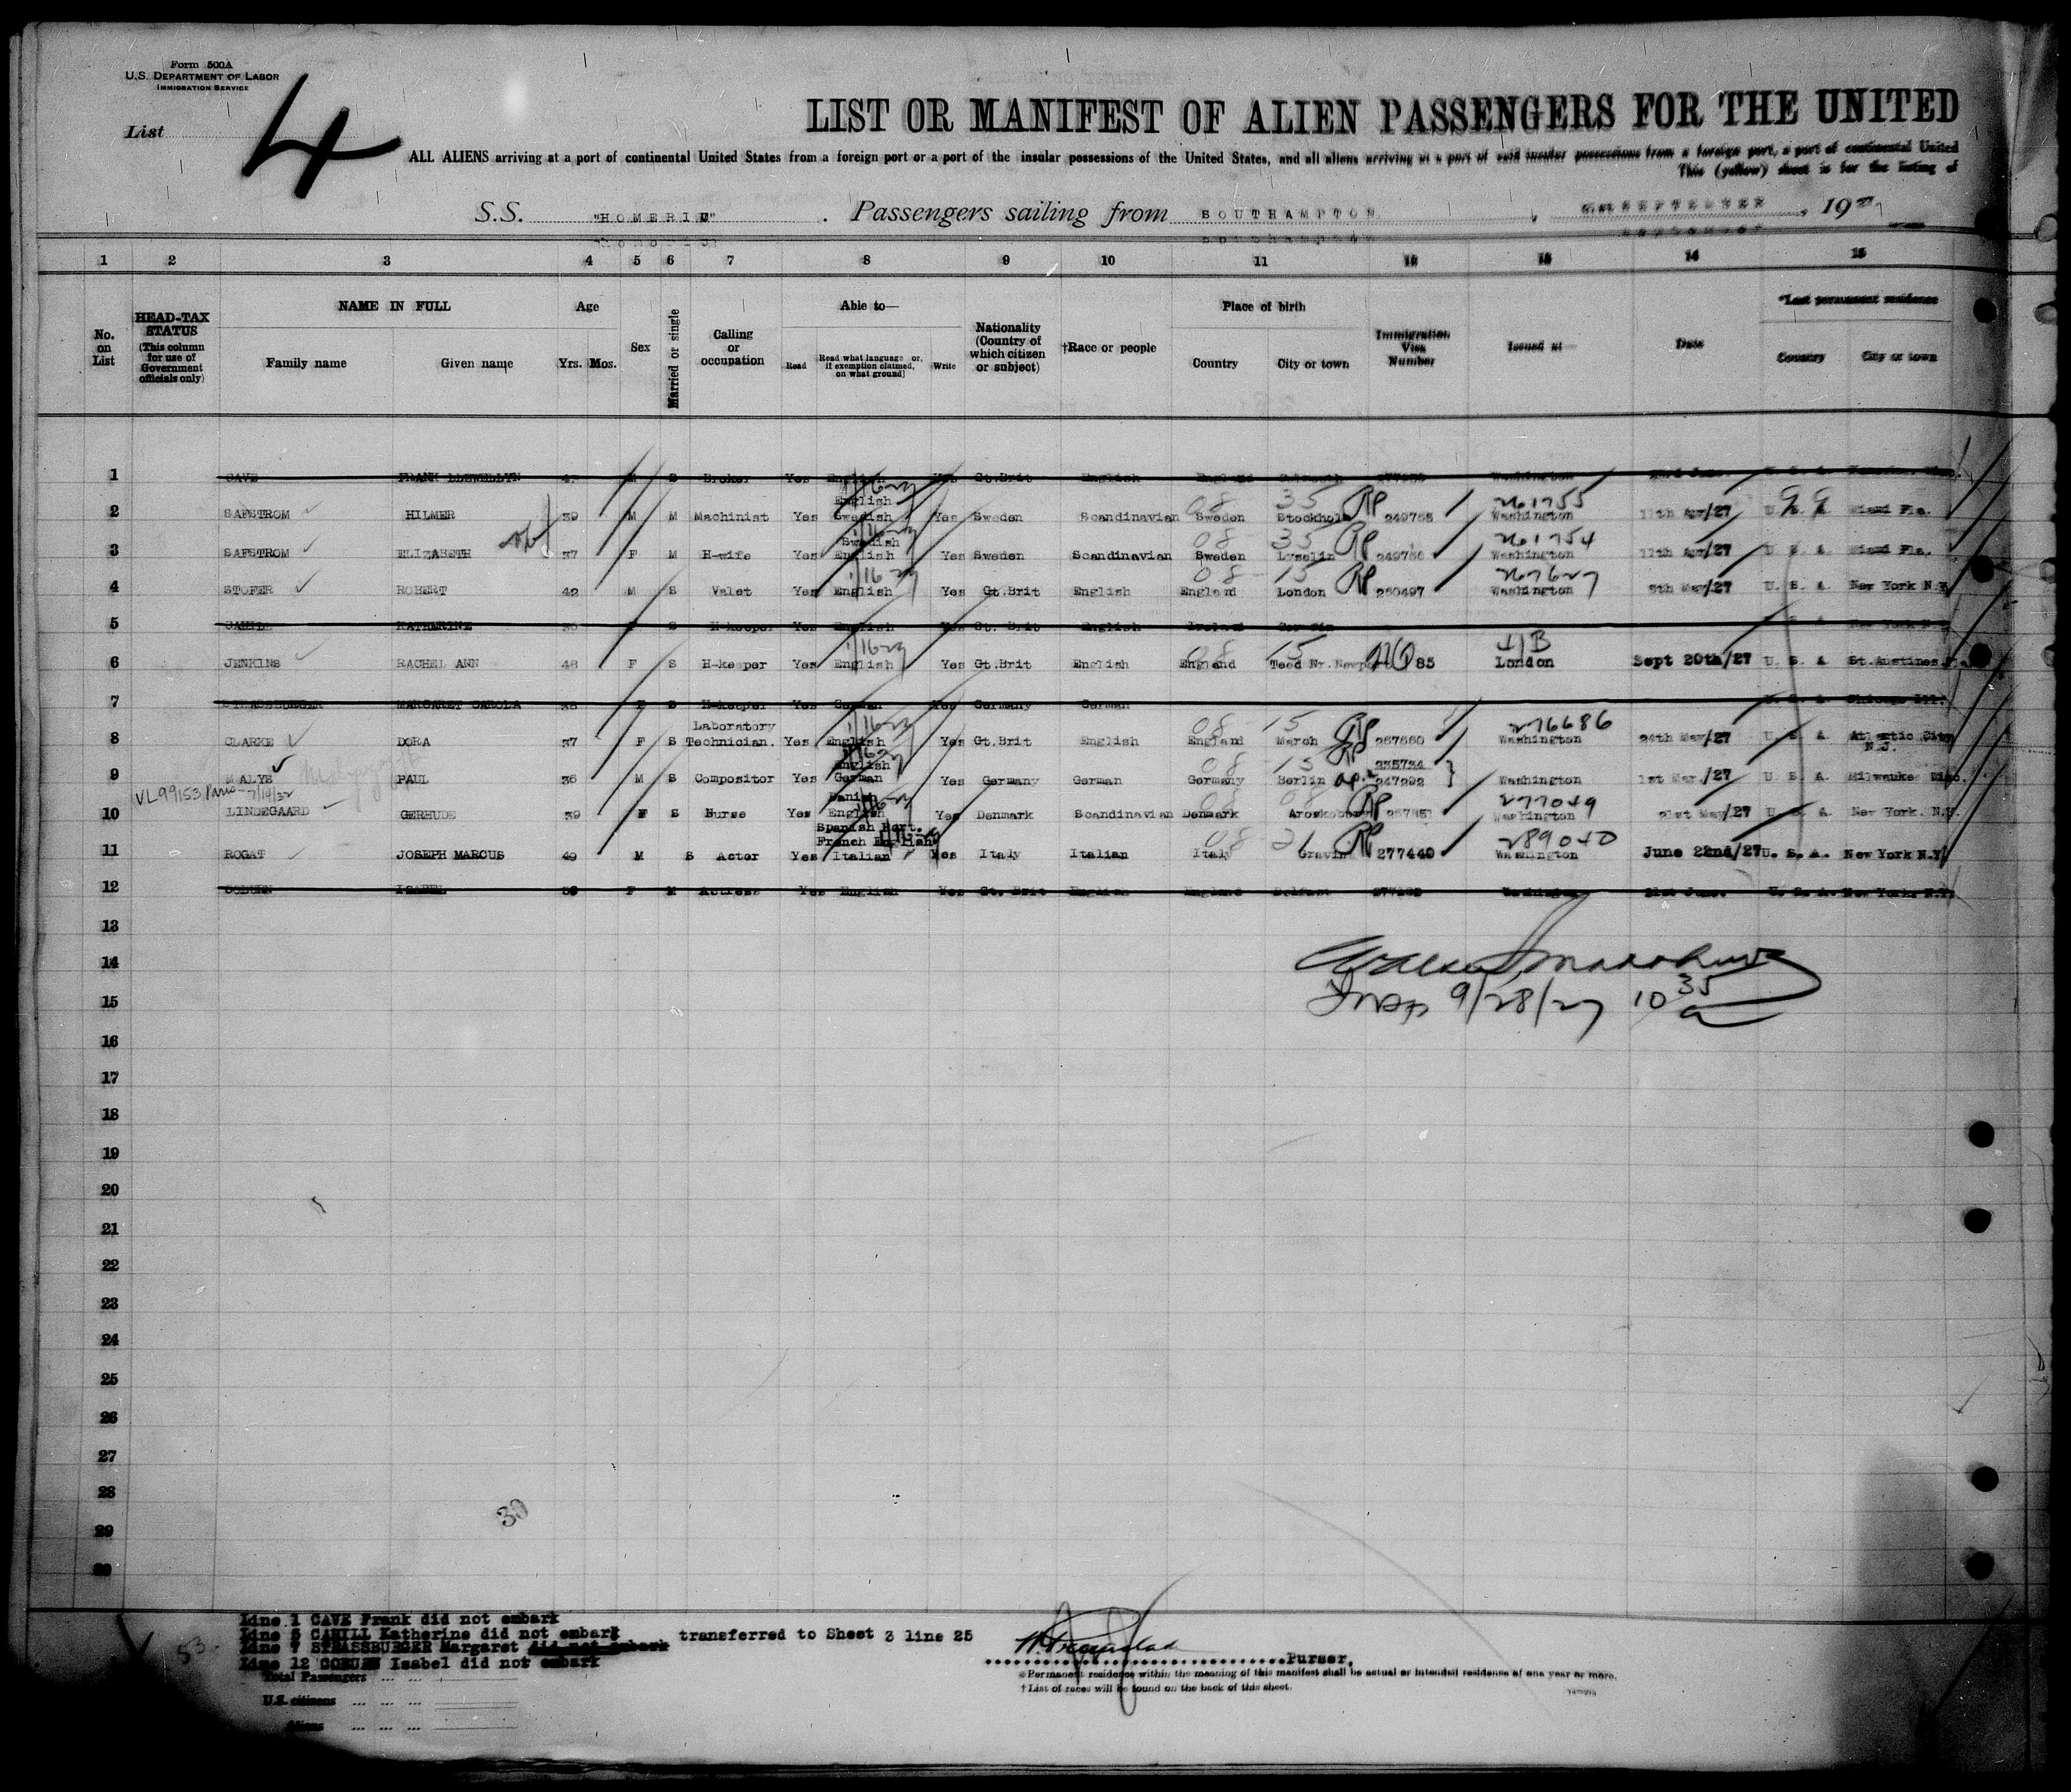 Form 500A
U.S. DEPARTMENT OF LABOR
IMMIGRATION SERVICE
List 4
LIST OR MANIFEST OF ALIEN PASSENGERS FOR THE UNITED
ALL ALIENS arriving at a port of continental United States from a foreign port or a port of the insular possessions of the United States, and all aliens arriving at a port of said insular possessions from a foreign port, a port of continental United
This (yellow) sheet is for the listing of
S.S. "HOMERIC" . Passengers sailing from SOUTHAMPTON , SEPTEMBER , 1927
1 2 3 4 5 6 7 8 9 10 11 12 13 14 15
No. on List
HEAD-TAX STATUS (This column for use of Government officials only)
NAME IN FULL
Family name Given name
Age
Yrs. Mos.
Sex
Married or single
Calling or occupation
Able to—
Read Read what language [or, if exemption claimed, on what ground] Write
Nationality (Country of which citizen or subject)
†Race or people
Place of birth
Country City or town
Immigration Visa Number
Issued at—
Date
*Last permanent residence
Country City or town
1 CAVE FRANK LLEWELLYN M S Broker Yes English Yes Gt.Brit English England Washington U. S. A.
2 SAFSTROM HILMER 39 M M Machinist Yes English Swedish Yes Sweden Scandinavian Sweden Stockholm RP 249785 261755 Washington 11th Apr/27 U. S. A Miami Fla.
3 SAFSTROM ELIZABETH 37 F M H-wife Yes Swedish English Yes Sweden Scandinavian Sweden Lyselin RP 249786 261754 Washington 11th Apr/27 U S A Miami Fla.
4 STOFER ROBERT 42 M S Valet Yes English Yes Gt.Brit English England London RP 250497 267627 Washington 5th May/27 U. S. A New York N.Y
5 CAHILL KATHERINE F S H-keeper Yes English Yes Gt. Brit English Ireland New York N.Y
6 JENKINS RACHEL ANN 48 F S H-keeper Yes English Yes Gt.Brit English England Teed Nr. Newport 85 London Sept 20th/27 U. S. A St.Austines
7 STRASSBURGER MARGARET CAROLA 38 F S H-keeper Yes German Yes Germany German U. S. A. Chicago Ill.
8 CLARKE DORA 37 F S Laboratory Technician. Yes English Yes Gt.Brit English England March RP 257660 276686 Washington 24th May/27 U S A Atlantic City N.J.
9 MALYS PAUL 36 M S Compositor Yes English German Yes Germany German Germany Berlin RP 235734 247292 Washington 1st Mar./27 U. S. A. Milwaukee Wisc.
VL99153 Paris 7/14/32
10 LINDEGAARD GERHUDE 39 F S Nurse Yes Danish English Yes Denmark Scandinavian Denmark RP 277049 Washington 21st May/27 U S A. New York. N.Y.
11 ROGAT JOSEPH MARCUS 49 M S Actor Yes Spanish Port. French English Italian Yes Italy Italian Italy Gravin 277440 289040 Washington June 22nd/27 U. S. A. New York N.Y
12 COBURN ISABEL 39 F M Actress Yes English Yes Gt. Brit English England Belfast Washington 21st June. U. S. A. New York. N.Y.
13
14
Insp 9/28/27 10 35 a
15
16
17
18
19
20
21
22
23
24
25
26
27
28
30
29
30
53.
Line 1 CAVE Frank did not embark
Line 5 CAHILL Katherine did not embark
Line 7 STRASSBURGER Margaret did not embark transferred to Sheet 3 line 25
Line 12 COBURN Isabel did not embark
Total Passengers
U.S. citizens
Aliens
Purser.
*Permanent residence within the meaning of this manifest shall be actual or intended residence of one year or more.
†List of races will be found on the back of this sheet.